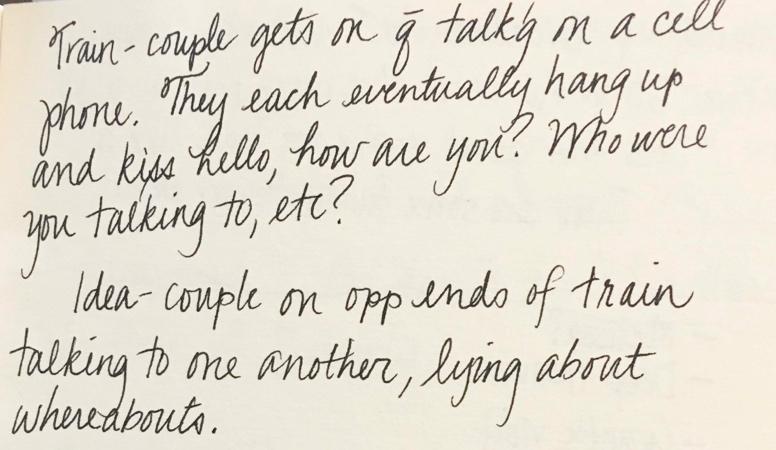 Train - couple gets on q̄ talk'g on a cell
phone. They each eventually hang up
and kiss hello, how are you? Who were
you talking to, etc?
Idea - couple on opp ends of train
talking to one another, lying about
whereabouts.